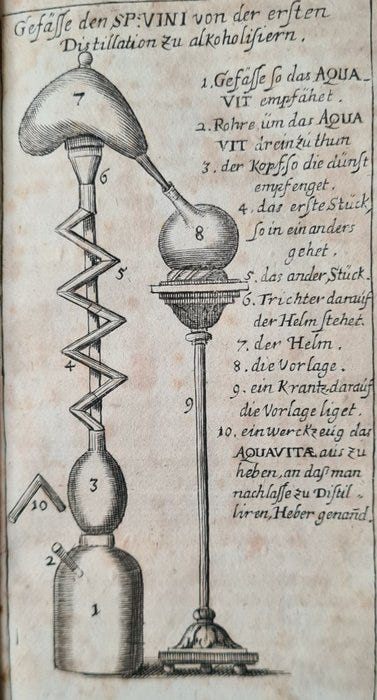 Gefässe den SP: VINI von der ersten
Distillation zu alkoholisiern.
1. Gefässe so das AQUA-
VIT empfähet.
2. Rohre üm das AQUA
VIT drein zu thun
3. der Kopf so die dünst
empfenget.
4. das erste Stück,
so in ein anders
gehet.
5. das ander Stück.
6. Trichter darauf
der Helm stehet.
7. der Helm.
8. die Vorlage.
9. ein Krantz darauf
die Vorlage liget.
10. ein werckzeug das
AQUAVITÆ aus zu
heben, an daß man
nachlasse zu Distil-
liren, Heber genañd.
7
6
8
5
4
9
3
10
2
1